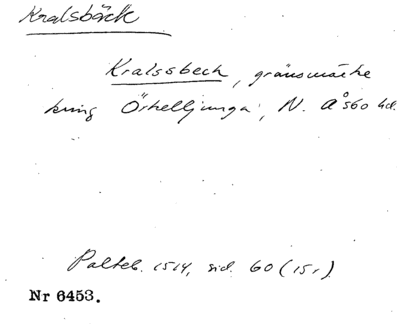 Kralsbäck
Kralssbeck, gränsmärke
kring Örkelljunga, N. Åsbo hd.
Palteb. 1514, sid. 60 (15r)
Nr 6453.